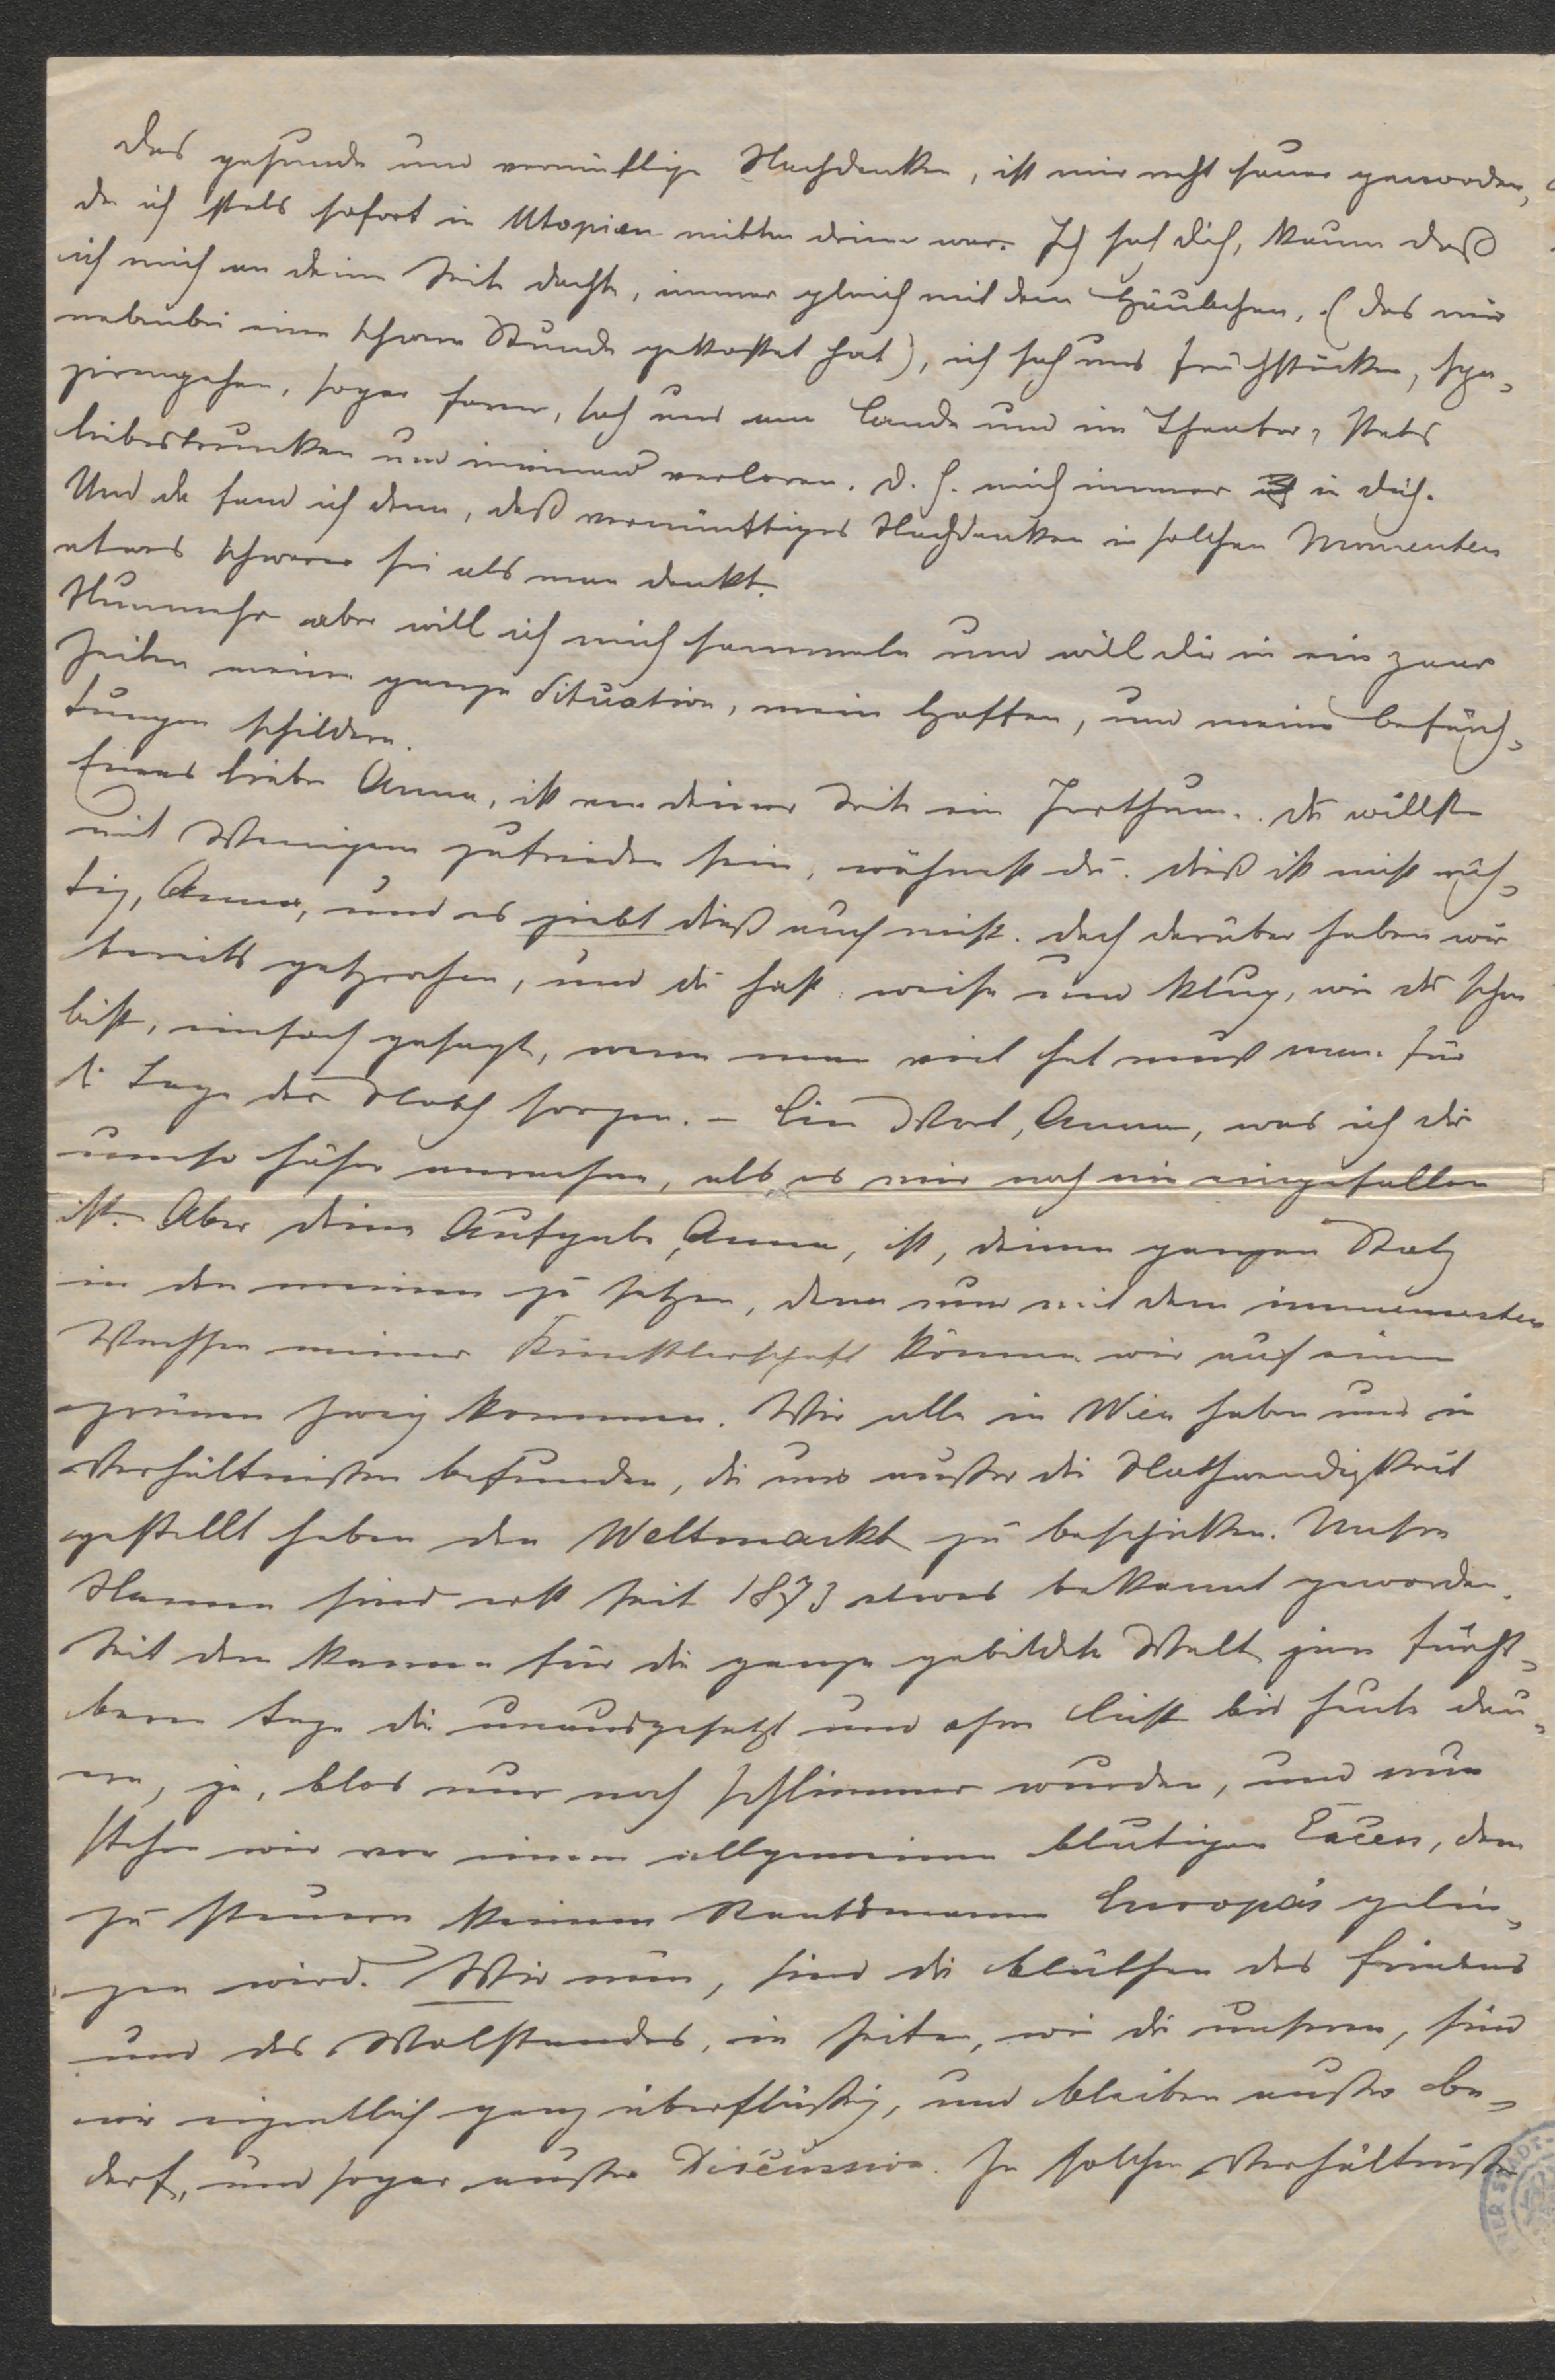 Das gesunde und vernünftige Nachdenken, ist mir recht sauer geworden,
da ich stets sofort in Utopien mitten drinn war. Ich sah dich, kaum daß
ich mich an deine Seite dachte, immer gleich mit dem Häubchen, (das mir
nebenbei eine schwere Stunde gekostet hat), ich sah uns frühstücken, spa-
zirengehen, sogar fahren, sah uns am Lande und im Theater, stets
liebestrunken und ineinand verloren. d. h. mich immer in dich.
Und da fand ich denn, daß vernünftiges Nachdenken in solchen Momenten
etwas schwerer sei als man denkt.
Nunmehr aber will ich mich sammeln und will dir in ein paar
Zeilen meine ganze Situation, mein Hoffen, und meine Befürch-
tungen schildern.
Eines liebe Anna, ist von deiner Seite ein Irrthum. du willst
mit Wenigem zufrieden sein, wähnest du. dieß ist nicht rich-
tig, Anna, und es giebt dieß auch nicht. doch darüber haben wir
bereits gesprochen, und du hast weise und klug, wie du schon
bist, einfach gesagt, wenn man viel hat muß man für
di Tage der Noth sorgen. – Ein Wort, Anna, was ich dir
umso höher anrechne, als es mir noch nie eingefallen
ist. Aber deine Aufgabe, Anna, ist, deinen ganzen Stolz
in den meinen zu setzen, denn nur mit dem immensesten
Wachsen meiner Künstlerschaft können wir auf einen
grünen Zweig kommen. Wir alle in Wien haben uns in
Verhältnißen befunden, die uns außer die Nothwendigkeit
gestellt haben den Weltmarkt zu beschicken. Unsere
Namen sind erst seit 1873 etwas bekannt geworden.
Seit dem kamen für die ganze gebildete Welt jene furcht-
baren Tage die unausgesetzt und ohne bis heute dau-
ern, ja, blos nur noch schlimmer wurden, und nun
stehen wir vor einem allgemeinen blutigen dem
zu steuern keinem Staatsmanne Europa's gelin-
gen wird. Wir nun, sind die Blüthen des Friedens
und des Wolstandes, in Zeiten, wie die unseren, sind
wir eigentlich ganz überflüßig, und bleiben außer Be-
darf, und sogar außer Discussion. In solchen Verhältniße